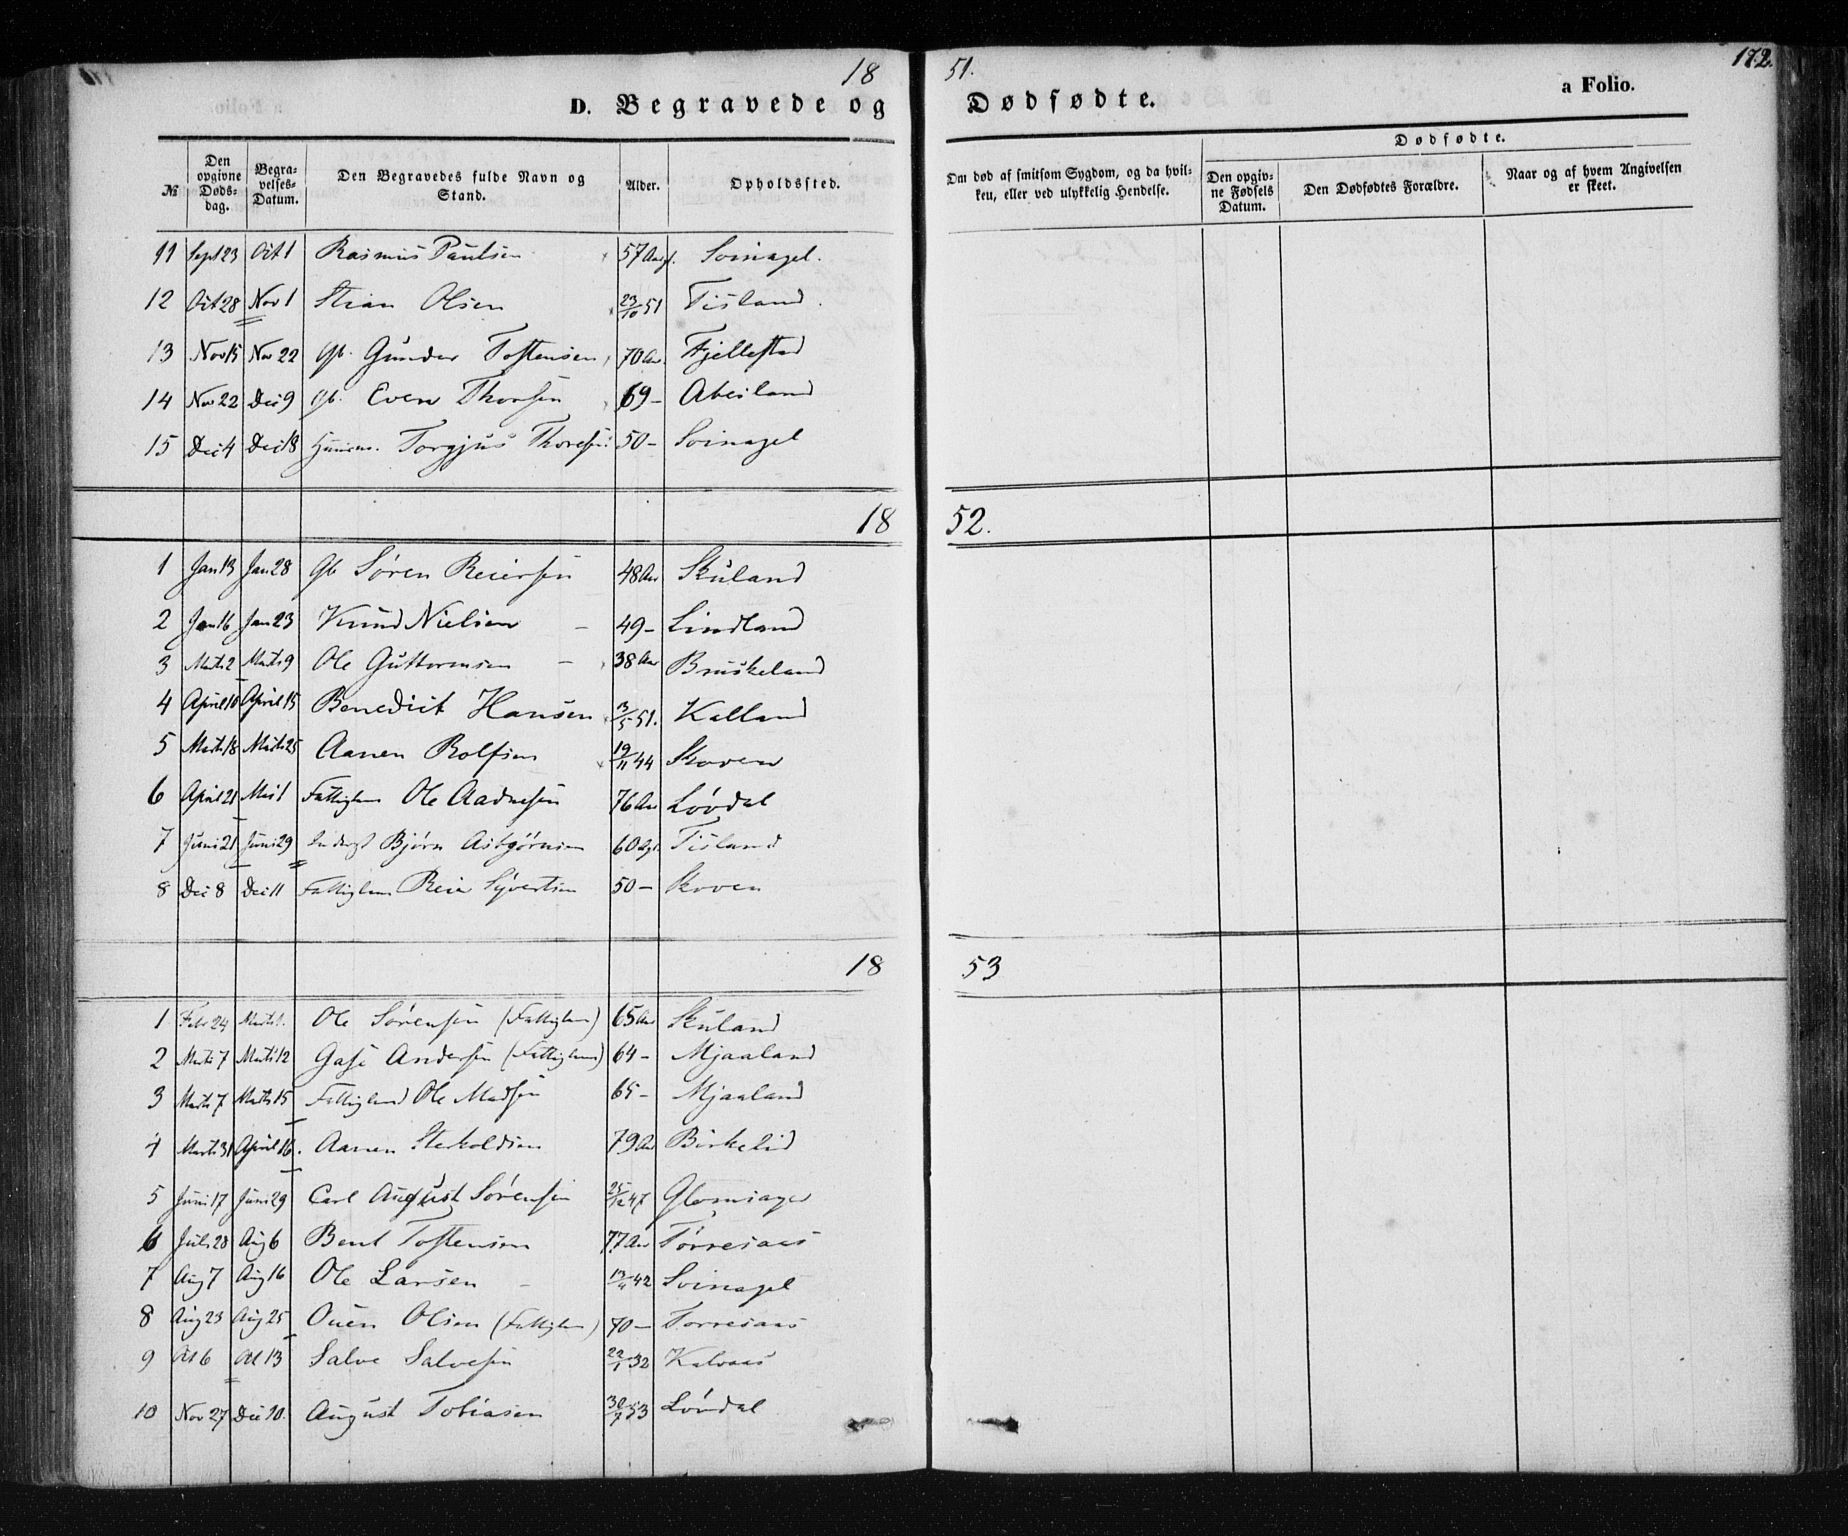 18 51. 172.
D. Begravede og Dødfødte. a Folio.
№ Den opgivne Døds-dag. Begra-velses-Datum. Den Begravedes fulde Navn og Stand. Alder. Opholdssted. Om død af smitsom Sygdom, og da hvil-ken, eller ved ulykkelig Hendelse. Dødfødte. Den opgiv-ne Fødsels Datum. Den Dødfødtes Forældre. Naar og af hvem Angivelsen er skeet.
11 Sept 23 Oct 1 Rasmus Paulsen 57 Aar Svinagel.
12 Oct 28 Nov 1 Stian Olsen 23/10 51 Tisland.
13 Nov 15 Nov 22 Gb. Gunder Tostensen 70 Aar. Fjellestad
14 Nov 22 Dec 9 Gb. Even Thorsen 69 - Abeiland
15 Dec 4 Dec 18 Huusm. Torgjus Thoresen 50 - Svinagel
18 52.
1 Jan 13 Jan 28 Gb Søren Reiersen 48 Aar Skuland
2 Jan 16 Jan 23 Knud Nielsen - 49 - Lindland
3 Marts 2 Marts 9 Ole Guttormsen - 38 Aar Bruskeland
4 April 10 April 15 Benedict Hansen 13/5 51. Kalland
5 Marts 18 Marts 25 Aanen Rolfsen 19/11 44 Skoven
6 April 21 Mai 1 Fattiglem Ole Aadnesen 76 Aar Løvdal
7 Juni 21 Juni 29 Inderst Bjørn Asbjørnsen 60 Tisland
8 Dec 8 Dec 11 Fattiglem Reier Syvertsen 50 - Skoven
18 53
1 Febr 24 Marts 1. Ole Sørensen (Fattiglem) 65 Aar Skuland
2 Marts 7 Marts 12 Andersen (Fattiglem) 64 - Mjaaland
3 Marts 7 Marts 15 Fattiglem Ole Madsen 65 - Mjaaland
4 Marts 31 April 16. Aanen Sterkoldsen 79 Aar Birkelid
5 Juni 17 Juni 29 Carl August Sørensen 25/12 47 Glomsager
6 Juli 28 Aug 6 Bent Tostensen 77 Aar Tørresaas
7 Aug 7 Aug 16 Ole Larsen - 13/11 42 Svinagel
8 Aug 23 Aug 25 Ouen Olsen (Fattiglem) 70 - Torresaas
9 Oct 6 Oct 13 Salve Salvesen 22/1 32 Kalvaas
10 Nov 27 Dec 10. August Tobiasen 30/9 53 Løvdal